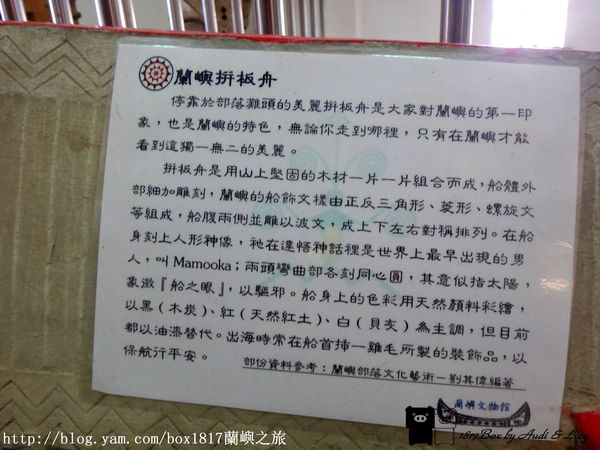 蘭嶼拼板舟
停靠於部落灘頭的美麗拼板舟是大家對蘭嶼的第一印
象，也是蘭嶼的特色，無論你走到哪裡，只有在蘭嶼才能
看到這獨一無二的美麗。
拼板舟是用山上堅固的木材一片一片組合而成，船體外
部細加雕刻，蘭嶼的船飾文樣由正反三角形、菱形、螺旋文
等組成，船腹兩側並雕以波文，成上下左右對稱排列。在船
身刻上人形神像，祂在達悟神話裡是世界上最早出現的男
人，叫Mamooka；兩頭彎曲部各刻同心圓，其意似指太陽，
象徵『船之眼』，以驅邪。船身上的色彩用天然顏料彩繪，
以黑(木炭)、紅(天然紅土)、白(貝灰)為主調，但目前
都以油漆替代。出海時常在船首插一雞毛所製的裝飾品，以
保航行平安。
部份資料參考：蘭嶼部落文化藝術—劉其偉編著
蘭嶼文物館
http://blog.yam.com/box1817蘭嶼之旅
1817Box by Audi & Lisy